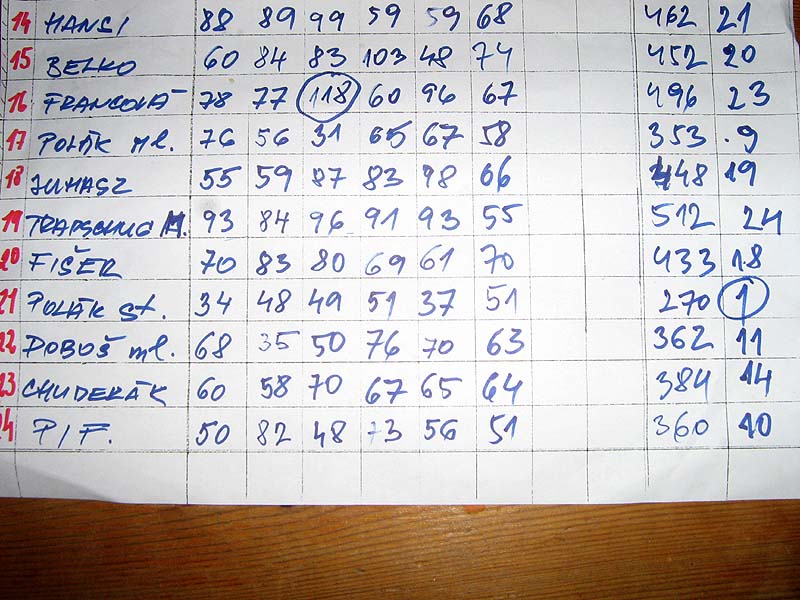 14 HANSI 88 89 99 59 59 68 462 21
15 BELKO 60 84 83 103 48 74 452 20
16 FRANCOVÁ 78 77 118 60 96 67 496 23
17 POLÁK ml. 76 56 31 65 67 58 353 9
18 JUHASZ 55 59 87 83 98 66 448 19
19 93 84 96 91 93 55 512 24
20 FIŠER 70 83 80 69 61 70 433 18
21 POLÁK st. 34 48 49 51 37 51 270 1
22 DOBOŠ ml. 68 35 50 76 70 63 362 11
23 CHUDERÁK 60 58 70 67 65 64 384 14
24 PIF. 50 82 48 73 56 51 360 10